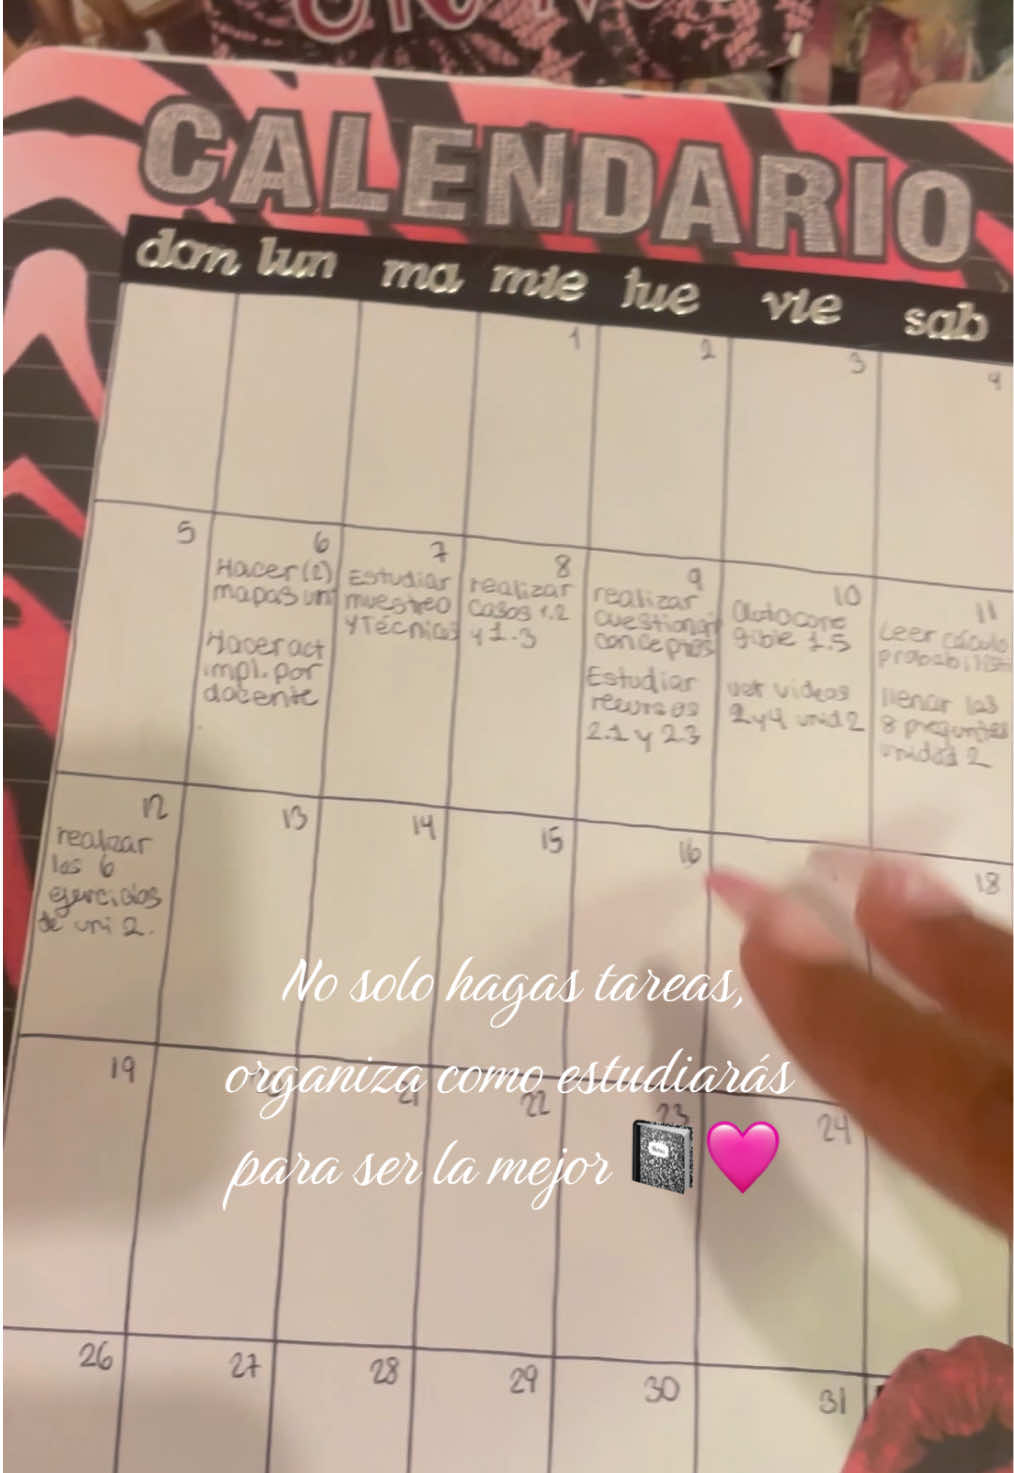 CALENDARIO
dom lun ma mie jue vie sab
1 2 3 4
5 6 7 8 9 10 11
Hacer (2)
mapas un
Hacer act
impl. por
docente
Estudiar
muestreo
y Técnicas
realizar
Casos 1.2
y 1.3
realizar
cuestionari
conceptos
Estudiar
recursos
2.1 y 2.3
1.5
ver videos
2 y 4 unid 2
Leer cálculo
probabilist
llenar las
8 preguntas
unidad 2
12 13 14 15 16 18
realizar
los 6
ejercicios
de uni 2.
No solo hagas tareas,
organiza como estudiarás
para ser la mejor
19 21 22 23 24
26 27 28 29 30 31